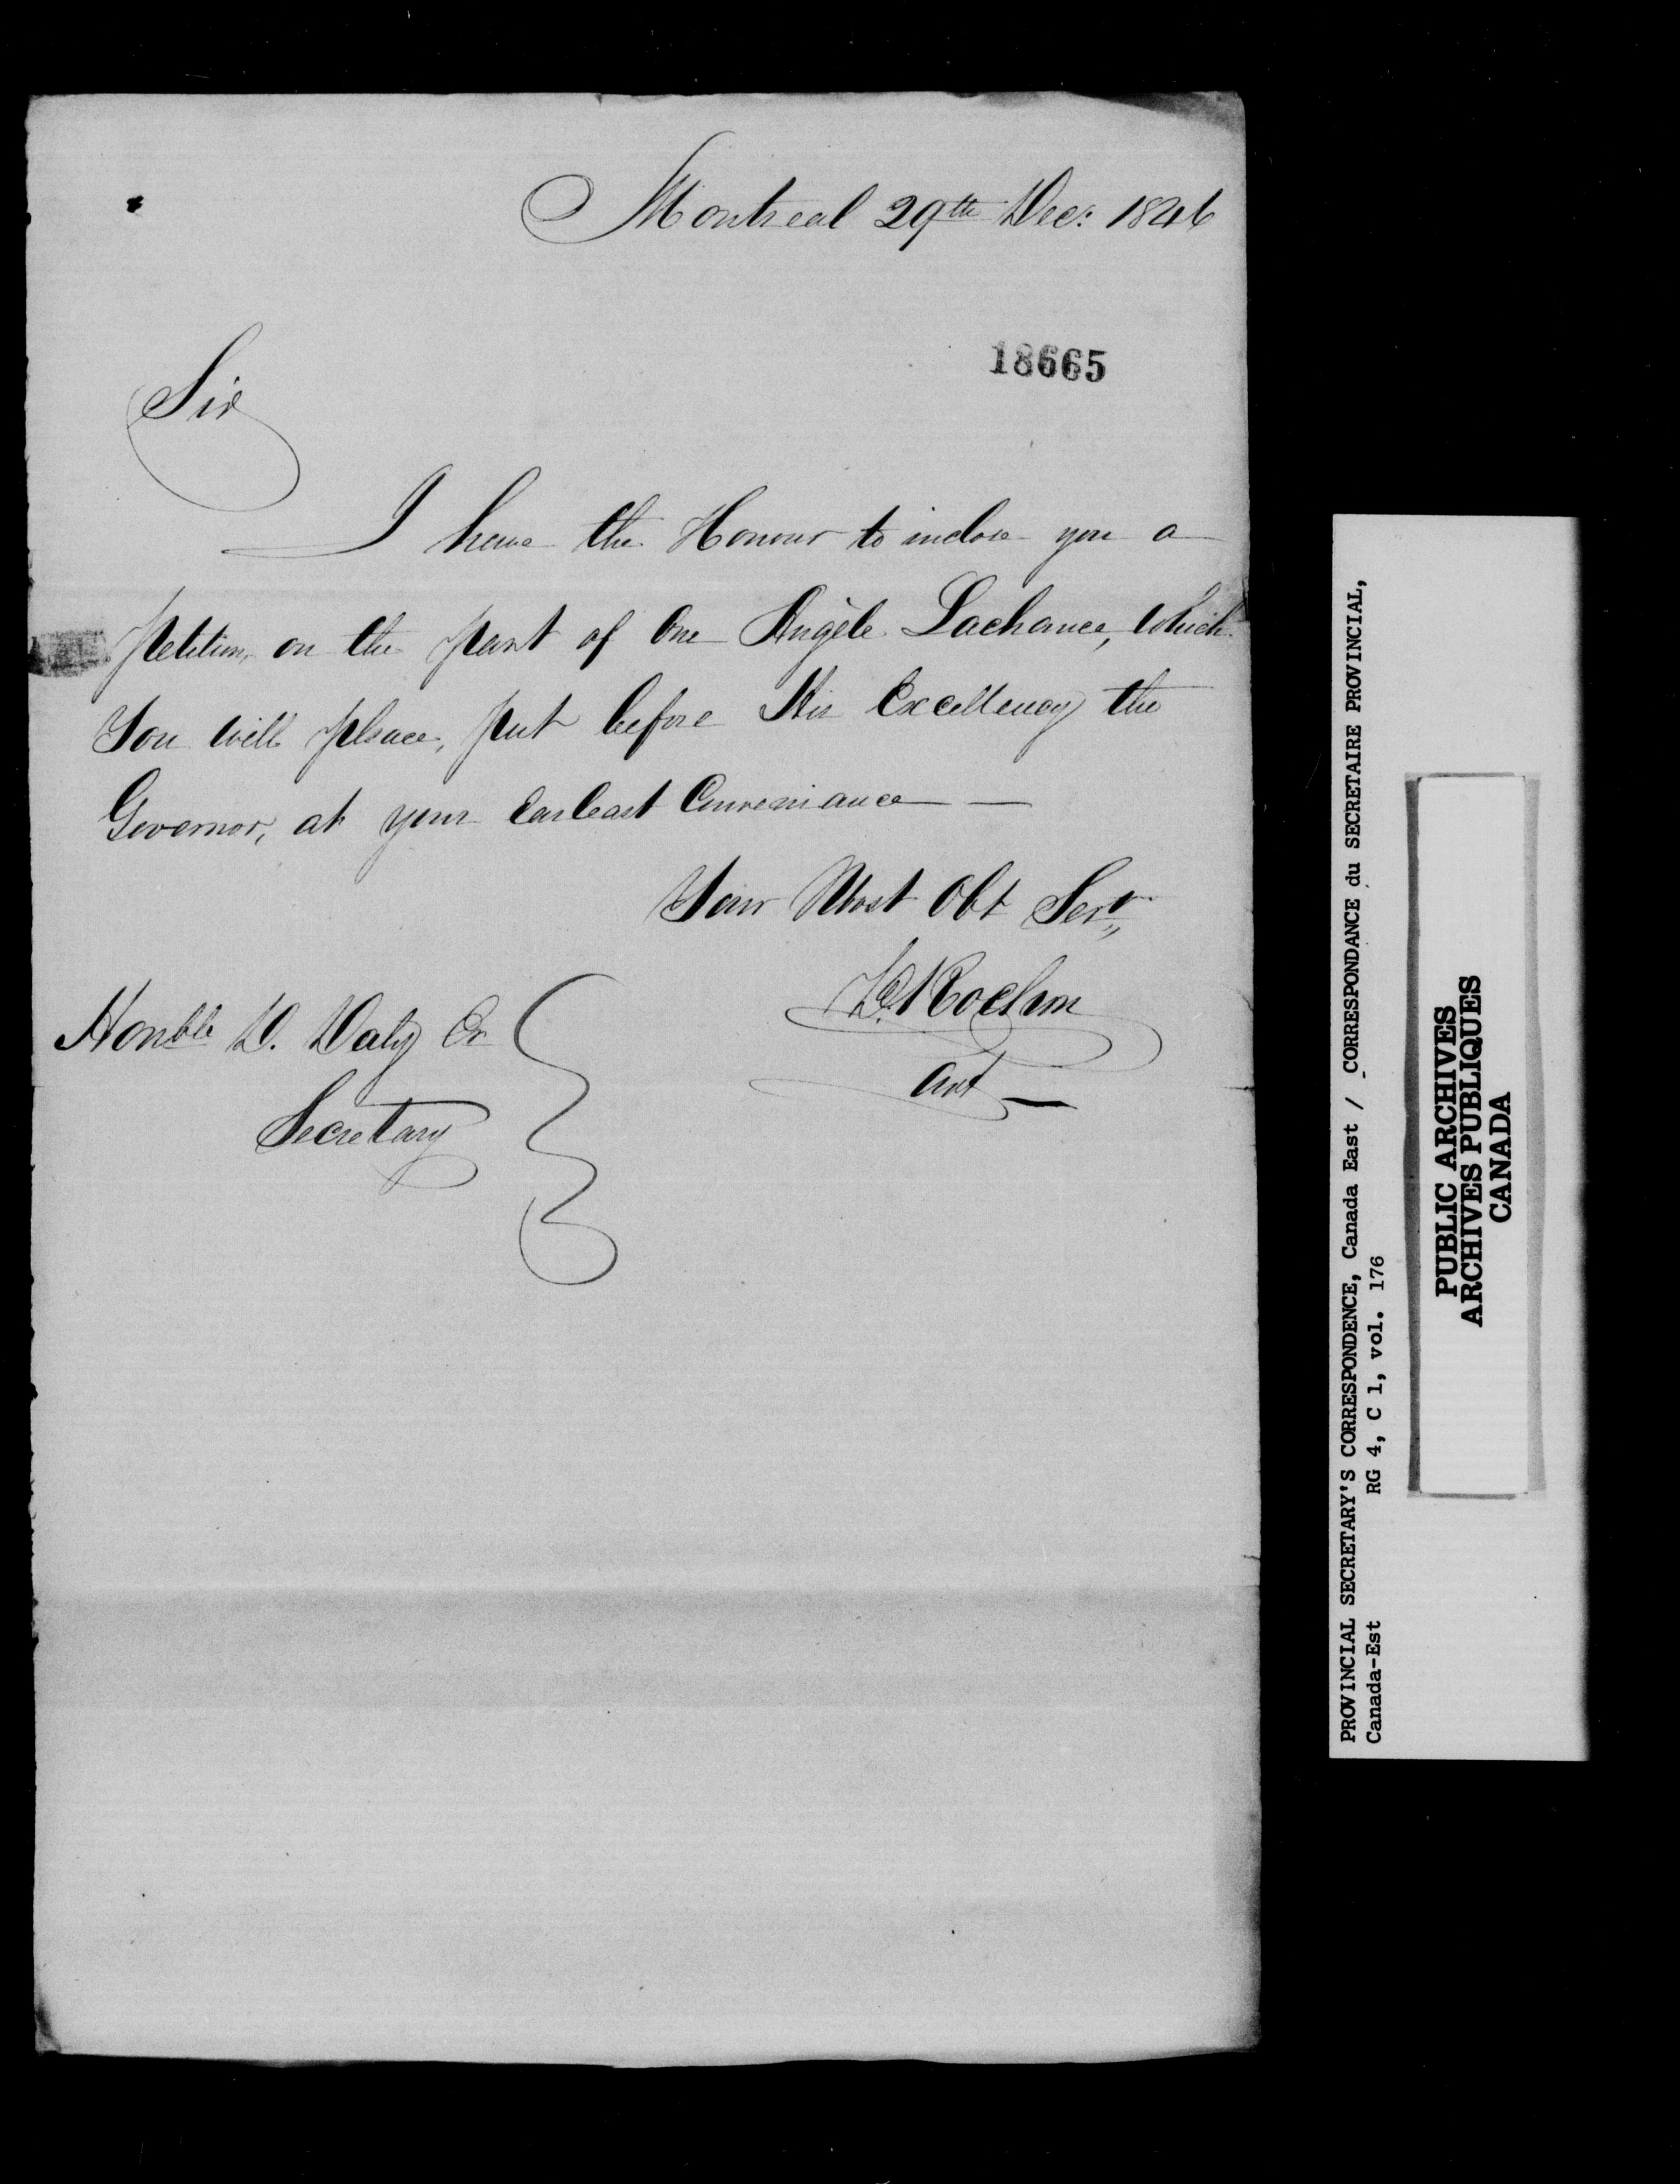 Montreal 29th Dec: 1846
18665
Sir
I have the Honour to inclose you a
petition, on the part of One Angèle Lachance, which
You will plsace, put before His Excellency the
Governor, at your Earleast Conveniance —
Your Most Obt Servt
Honble D. Daly
Secretary
PROVINCIAL SECRETARY'S CORRESPONDENCE, Canada East / CORRESPONDANCE du SECRETAIRE PROVINCIAL,
Canada-Est RG 4, C 1, vol. 176
PUBLIC ARCHIVES
ARCHIVES PUBLIQUES
CANADA